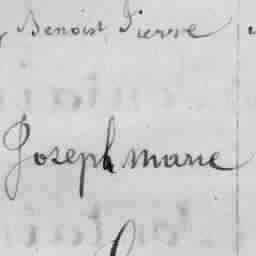 Benoist Pierre
Joseph marie